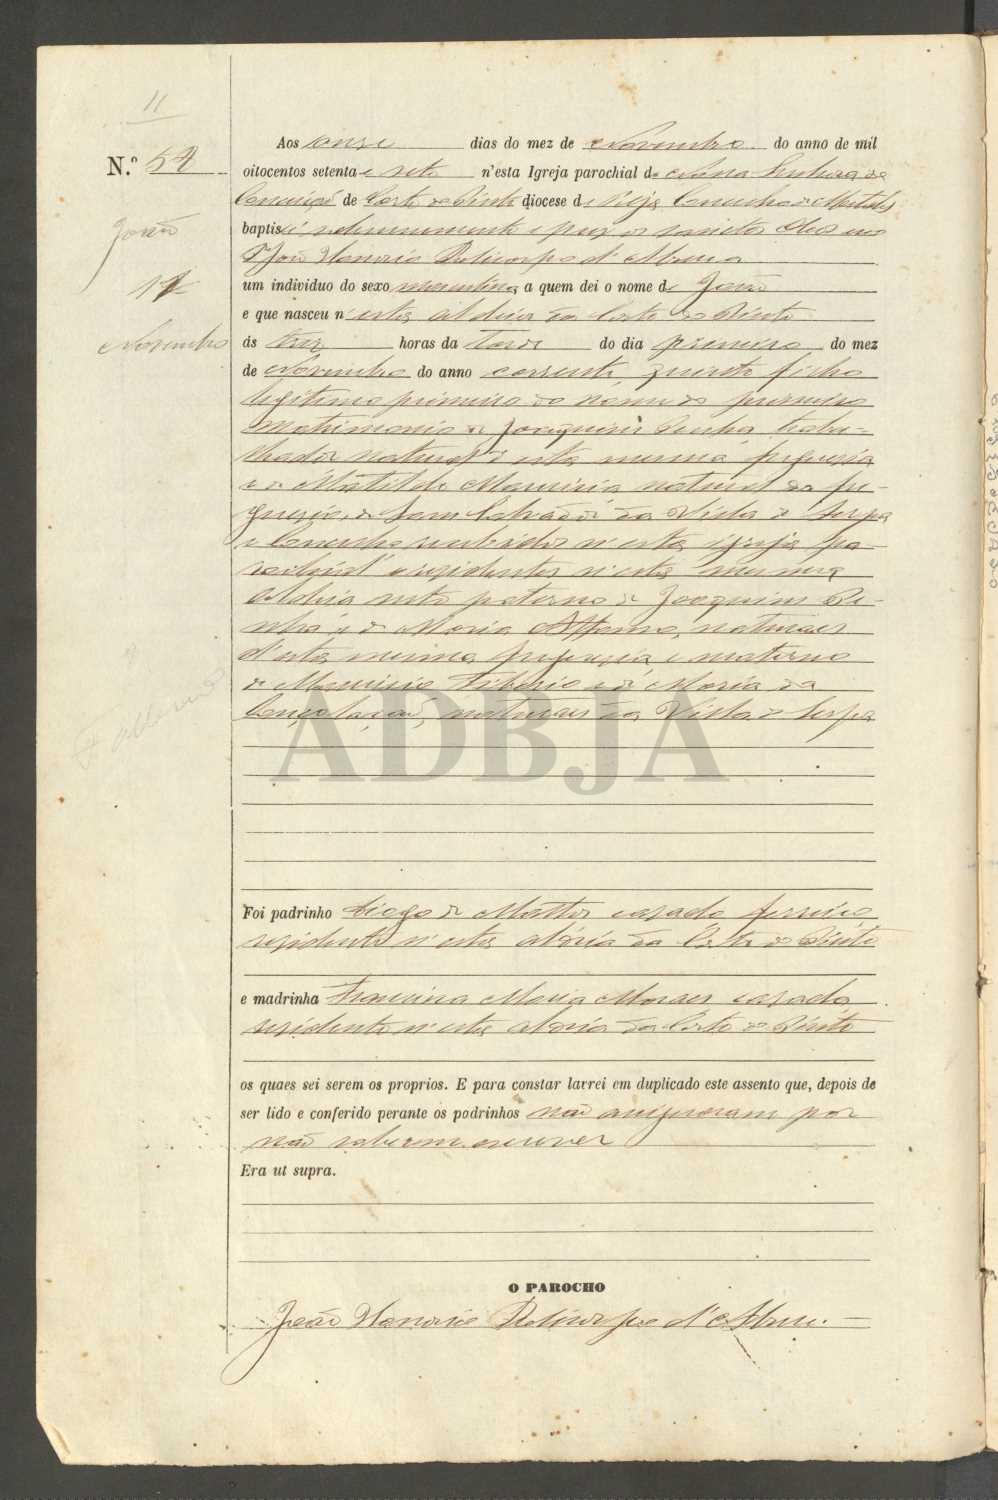 11
N.º 54
João
11
Novembro
Falleceu
Aos onze dias do mez de Novembro do anno de mil
oitocentos setenta e sete n'esta Igreja parochial de Nossa Senhora da
Conceição de Corte do Pinto diocese de Beja Concelho de Mertola
baptisei solemnemente e puz os sanctos Oleos eu
João Honorio Policarpo d'
um individuo do sexo masculino a quem dei o nome de João
e que nasceu n'esta aldeia da Corte do Pinto
ás tres horas da tarde do dia primeiro do mez
de Novembro do anno corrente, filho
legitimo primeiro do nome do primeiro
matrimonio de Joaquim Penha traba-
lhador natural d'esta mesma freguesia
e de Mathilde Mauricia natural da fre-
guezia de Sam Salvador da Villa de Serpa
e Concelho recebidos n'esta igreja pa-
rochial e residentes n'esta mesma
aldeia neto paterno de Joaquim Pe-
nha e de Maria Affonso, naturaes
d'esta mesma freguesia, e materno
de Mauricio Tiberio e de Maria da
naturaes da Villa de Serpa
Foi padrinho Diogo de Mattos casado ferreiro
residente n'esta aldeia da Corte do Pinto
e madrinha Francisca Maria Moraes casada,
residente n'esta aldeia da Corte do Pinto
os quaes sei serem os proprios. E para constar lavrei em duplicado este assento que, depois de
ser lido e conferido perante os padrinhos não assignaram por
não saberem escrever
Era ut supra.
O PAROCHO
João Honorio Policarpo d'
ADBJA